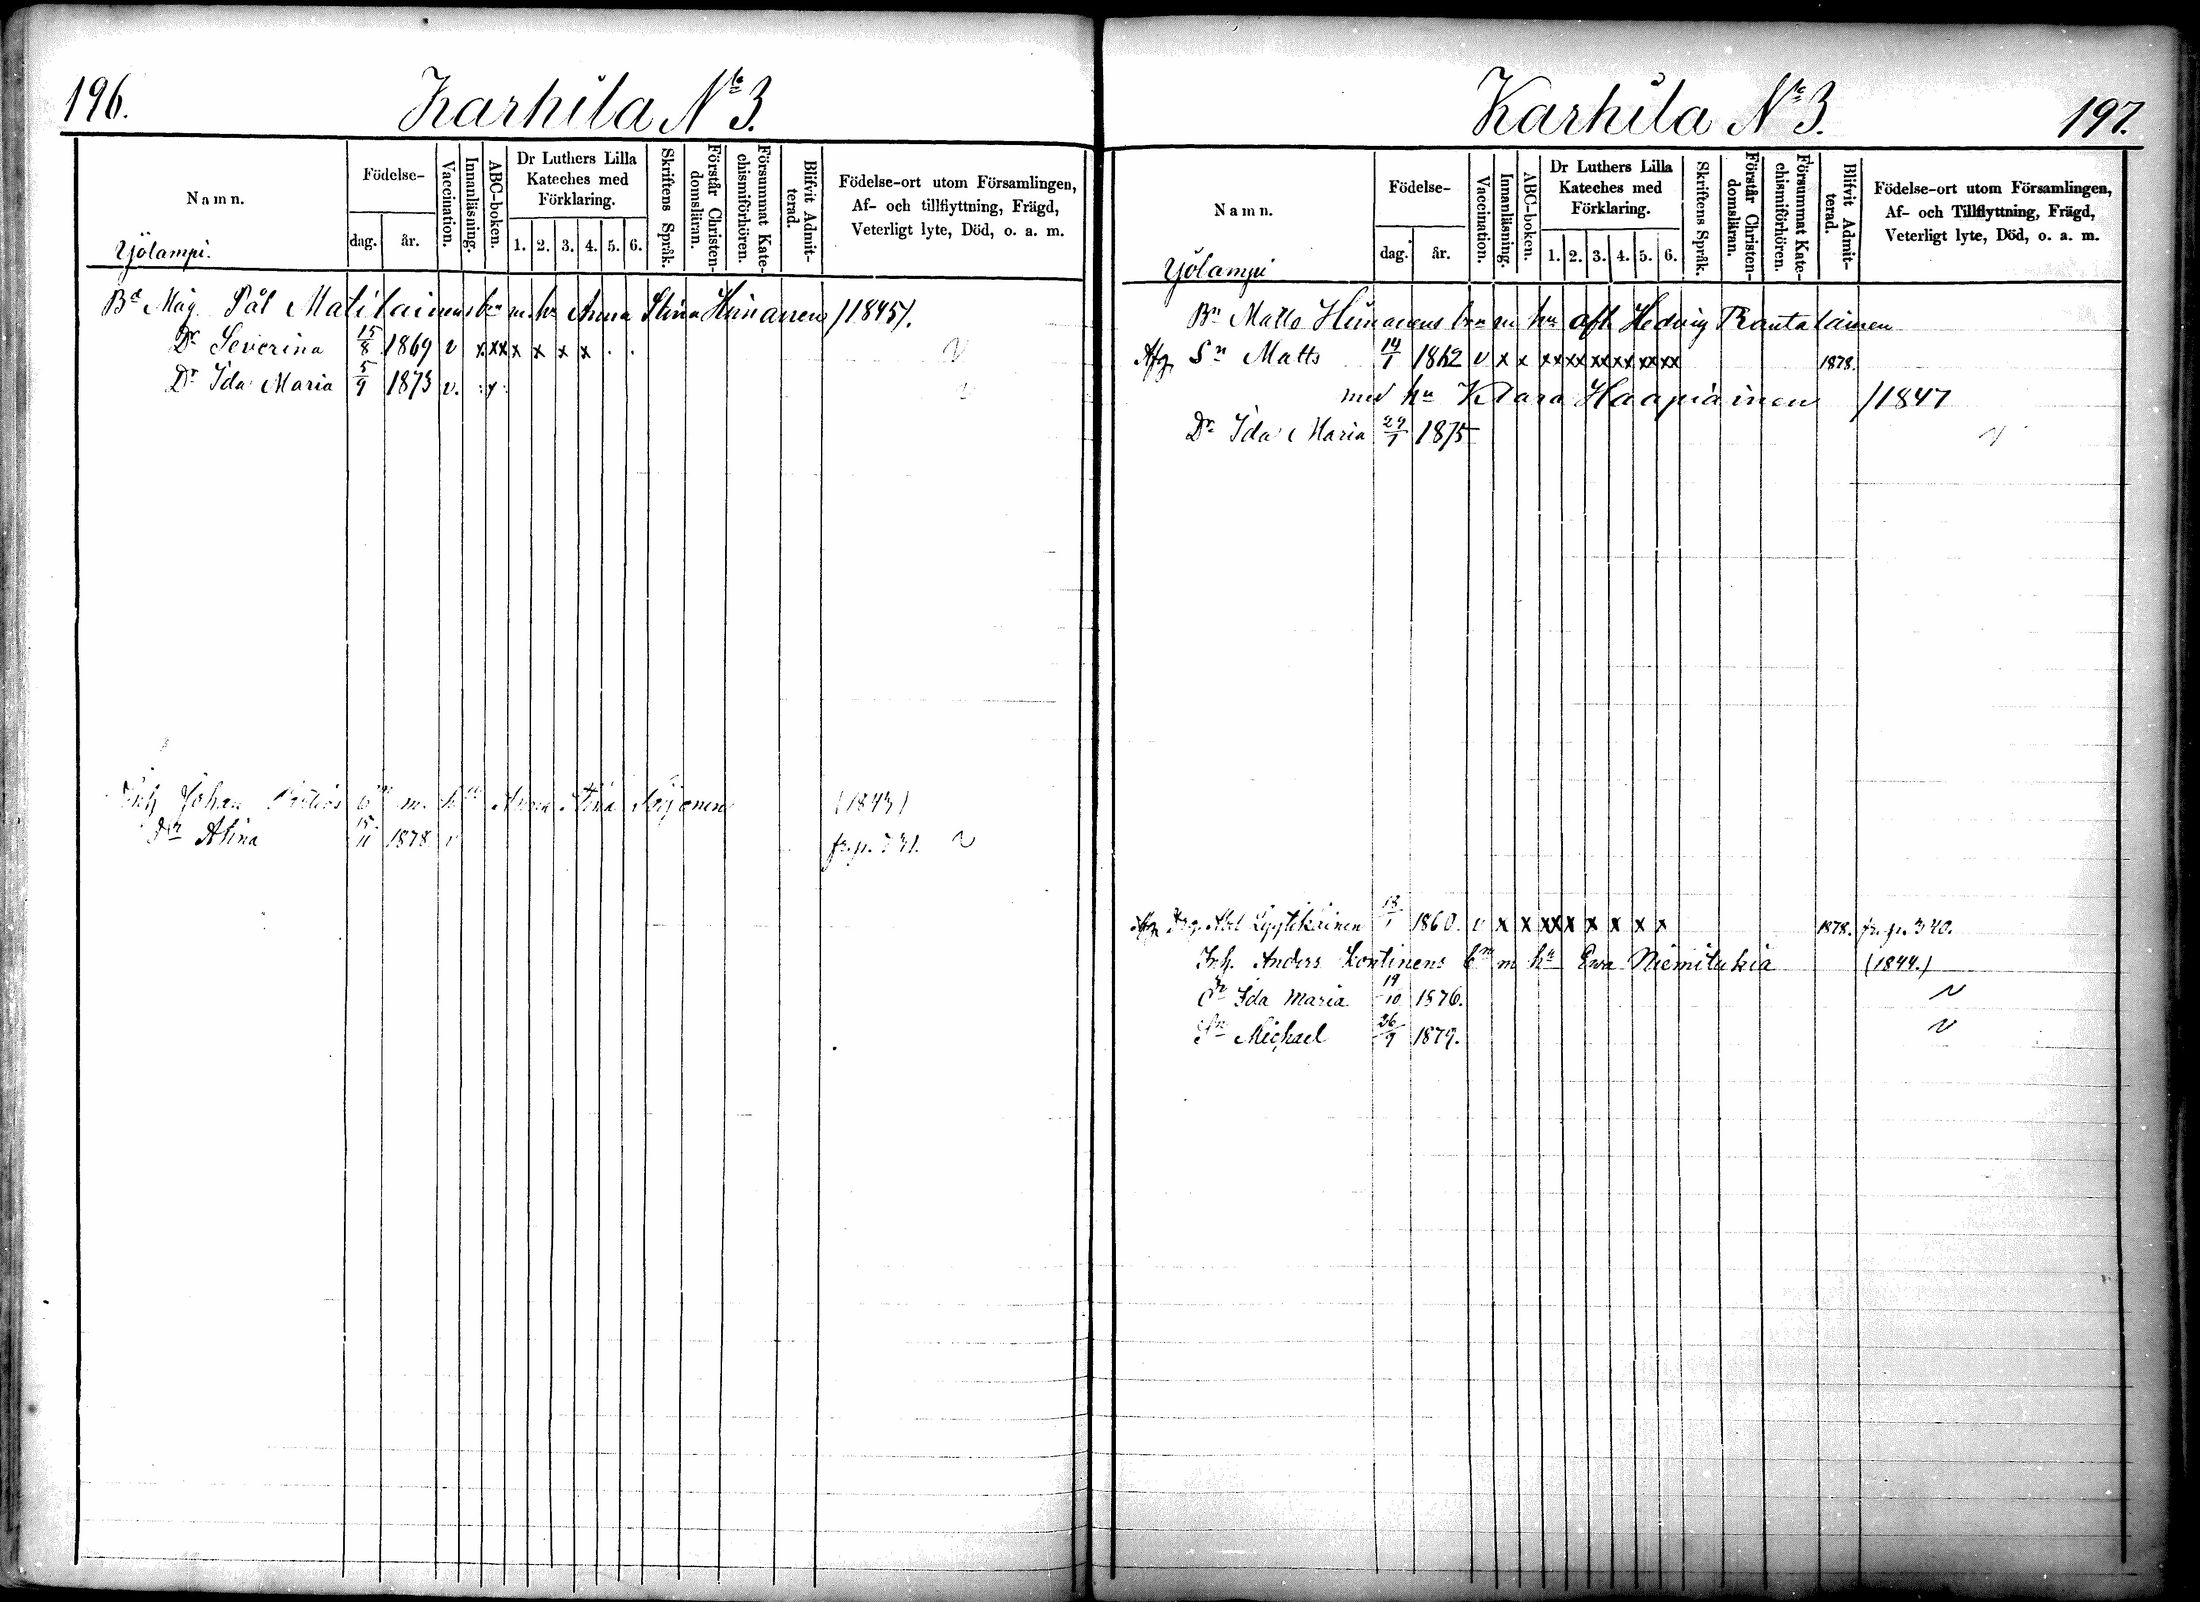 196.
Karhila No 3.
Namn.
Födelse-
dag.
år.
Vaccination.
Innanläsning.
ABC-boken.
Dr Luthers Lilla
Kateches med
Förklaring.
1. 2. 3. 4. 5. 6.
Skriftens Språk.
Förstår Christen-
domsläran.
Försummat Kate-
chismiförhören.
Blifvit Admit-
terad.
Födelse-ort utom Församlingen,
Af- och tillflyttning, Frägd,
Veterligt lyte, Död, o. a. m.
Yölampi.
Bd Mag. Pål Matilainens bn m. hu Anna Stina Hiinanen /1845/.
Dr Severina 15/8 1869 v x xx x x x x . . v
Dr Ida Maria 5/9 1873 v. v
Inh Johan bn m. hu Anna Stina (1843)
Dr Stina 15/11 1878 v fr. p. v
Karhila No 3.
197.
Namn.
Födelse-
dag.
år.
Vaccination.
Innanläsning.
ABC-boken.
Dr Luthers Lilla
Kateches med
Förklaring.
1. 2. 3. 4. 5. 6.
Skriftens Språk.
Förstår Christen-
domsläran.
Försummat Kate-
chismiförhören.
Blifvit Admit-
terad.
Födelse-ort utom Församlingen,
Af- och Tillflyttning, Frägd,
Veterligt lyte, Död, o. a. m.
Yölampi
Bn Matts Hiinanens bn m hu afl Hedvig Rautalainen
Afg Sn Matts 14/1 1862 v x x xx xx xx xx xx xx 1878.
med hu Klara Haapiainen /1847
Dr Ida Maria 29/7 1875 v
Afg Abel Lyytikäinen 13/1 1860. v x x xx x x x x x 1878. fr. p. 340.
Inh. Anders Kontinens bn m hu Ewa Niemitukia (1844.)
Dr Ida Maria 19/10 1876. v
Sn Michael 26/9 1879. v